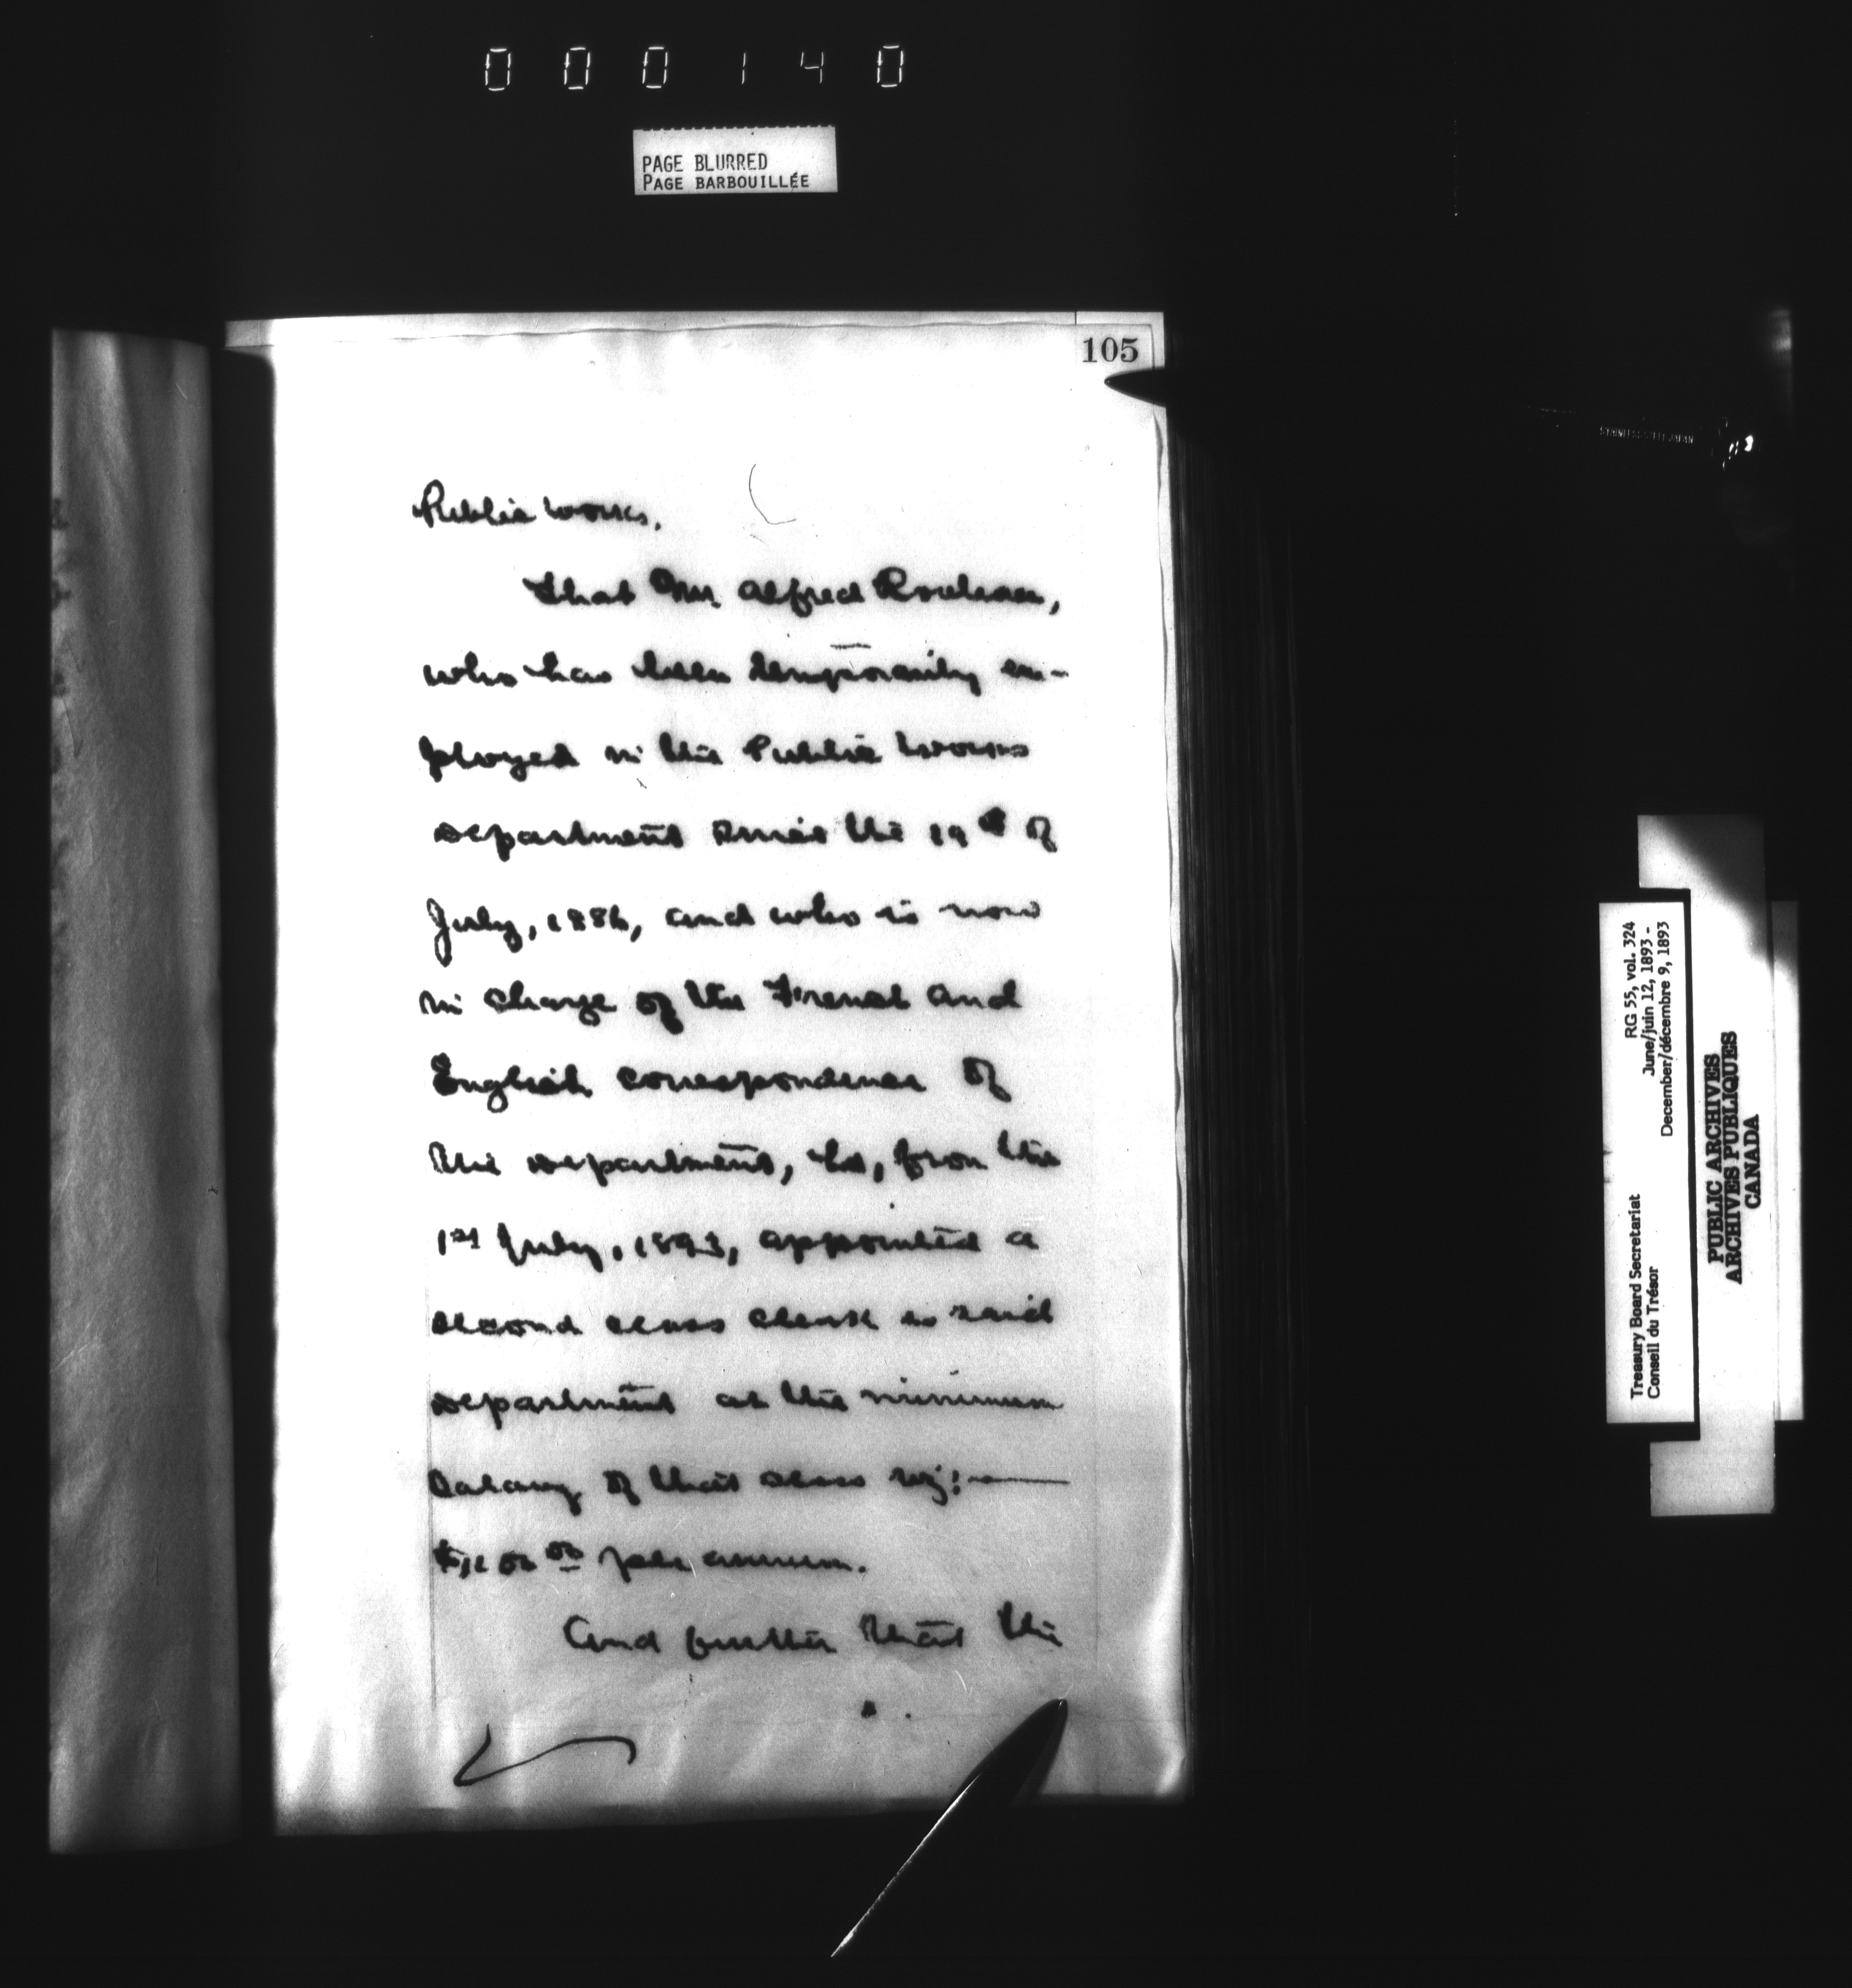 000140
PAGE BLURRED
PAGE BARBOUILLÉE
105
Public Works.
That Mr. Alfred Rouleau,
who has been temporarily em-
ployed in the Public Works
Department since the 19th of
July, 1886, and who is now
in charge of the French and
English correspondence of
the Department, be, from the
1st July, 1893, appointed a
second class clerk in said
Department at the minimum
salary of that class viz:—
per annum.
And further that the
Treasury Board Secretariat RG 55, vol. 324
Conseil du Trésor June/juin 12, 1893 -
December/décembre 9, 1893
PUBLIC ARCHIVES
ARCHIVES PUBLIQUES
CANADA